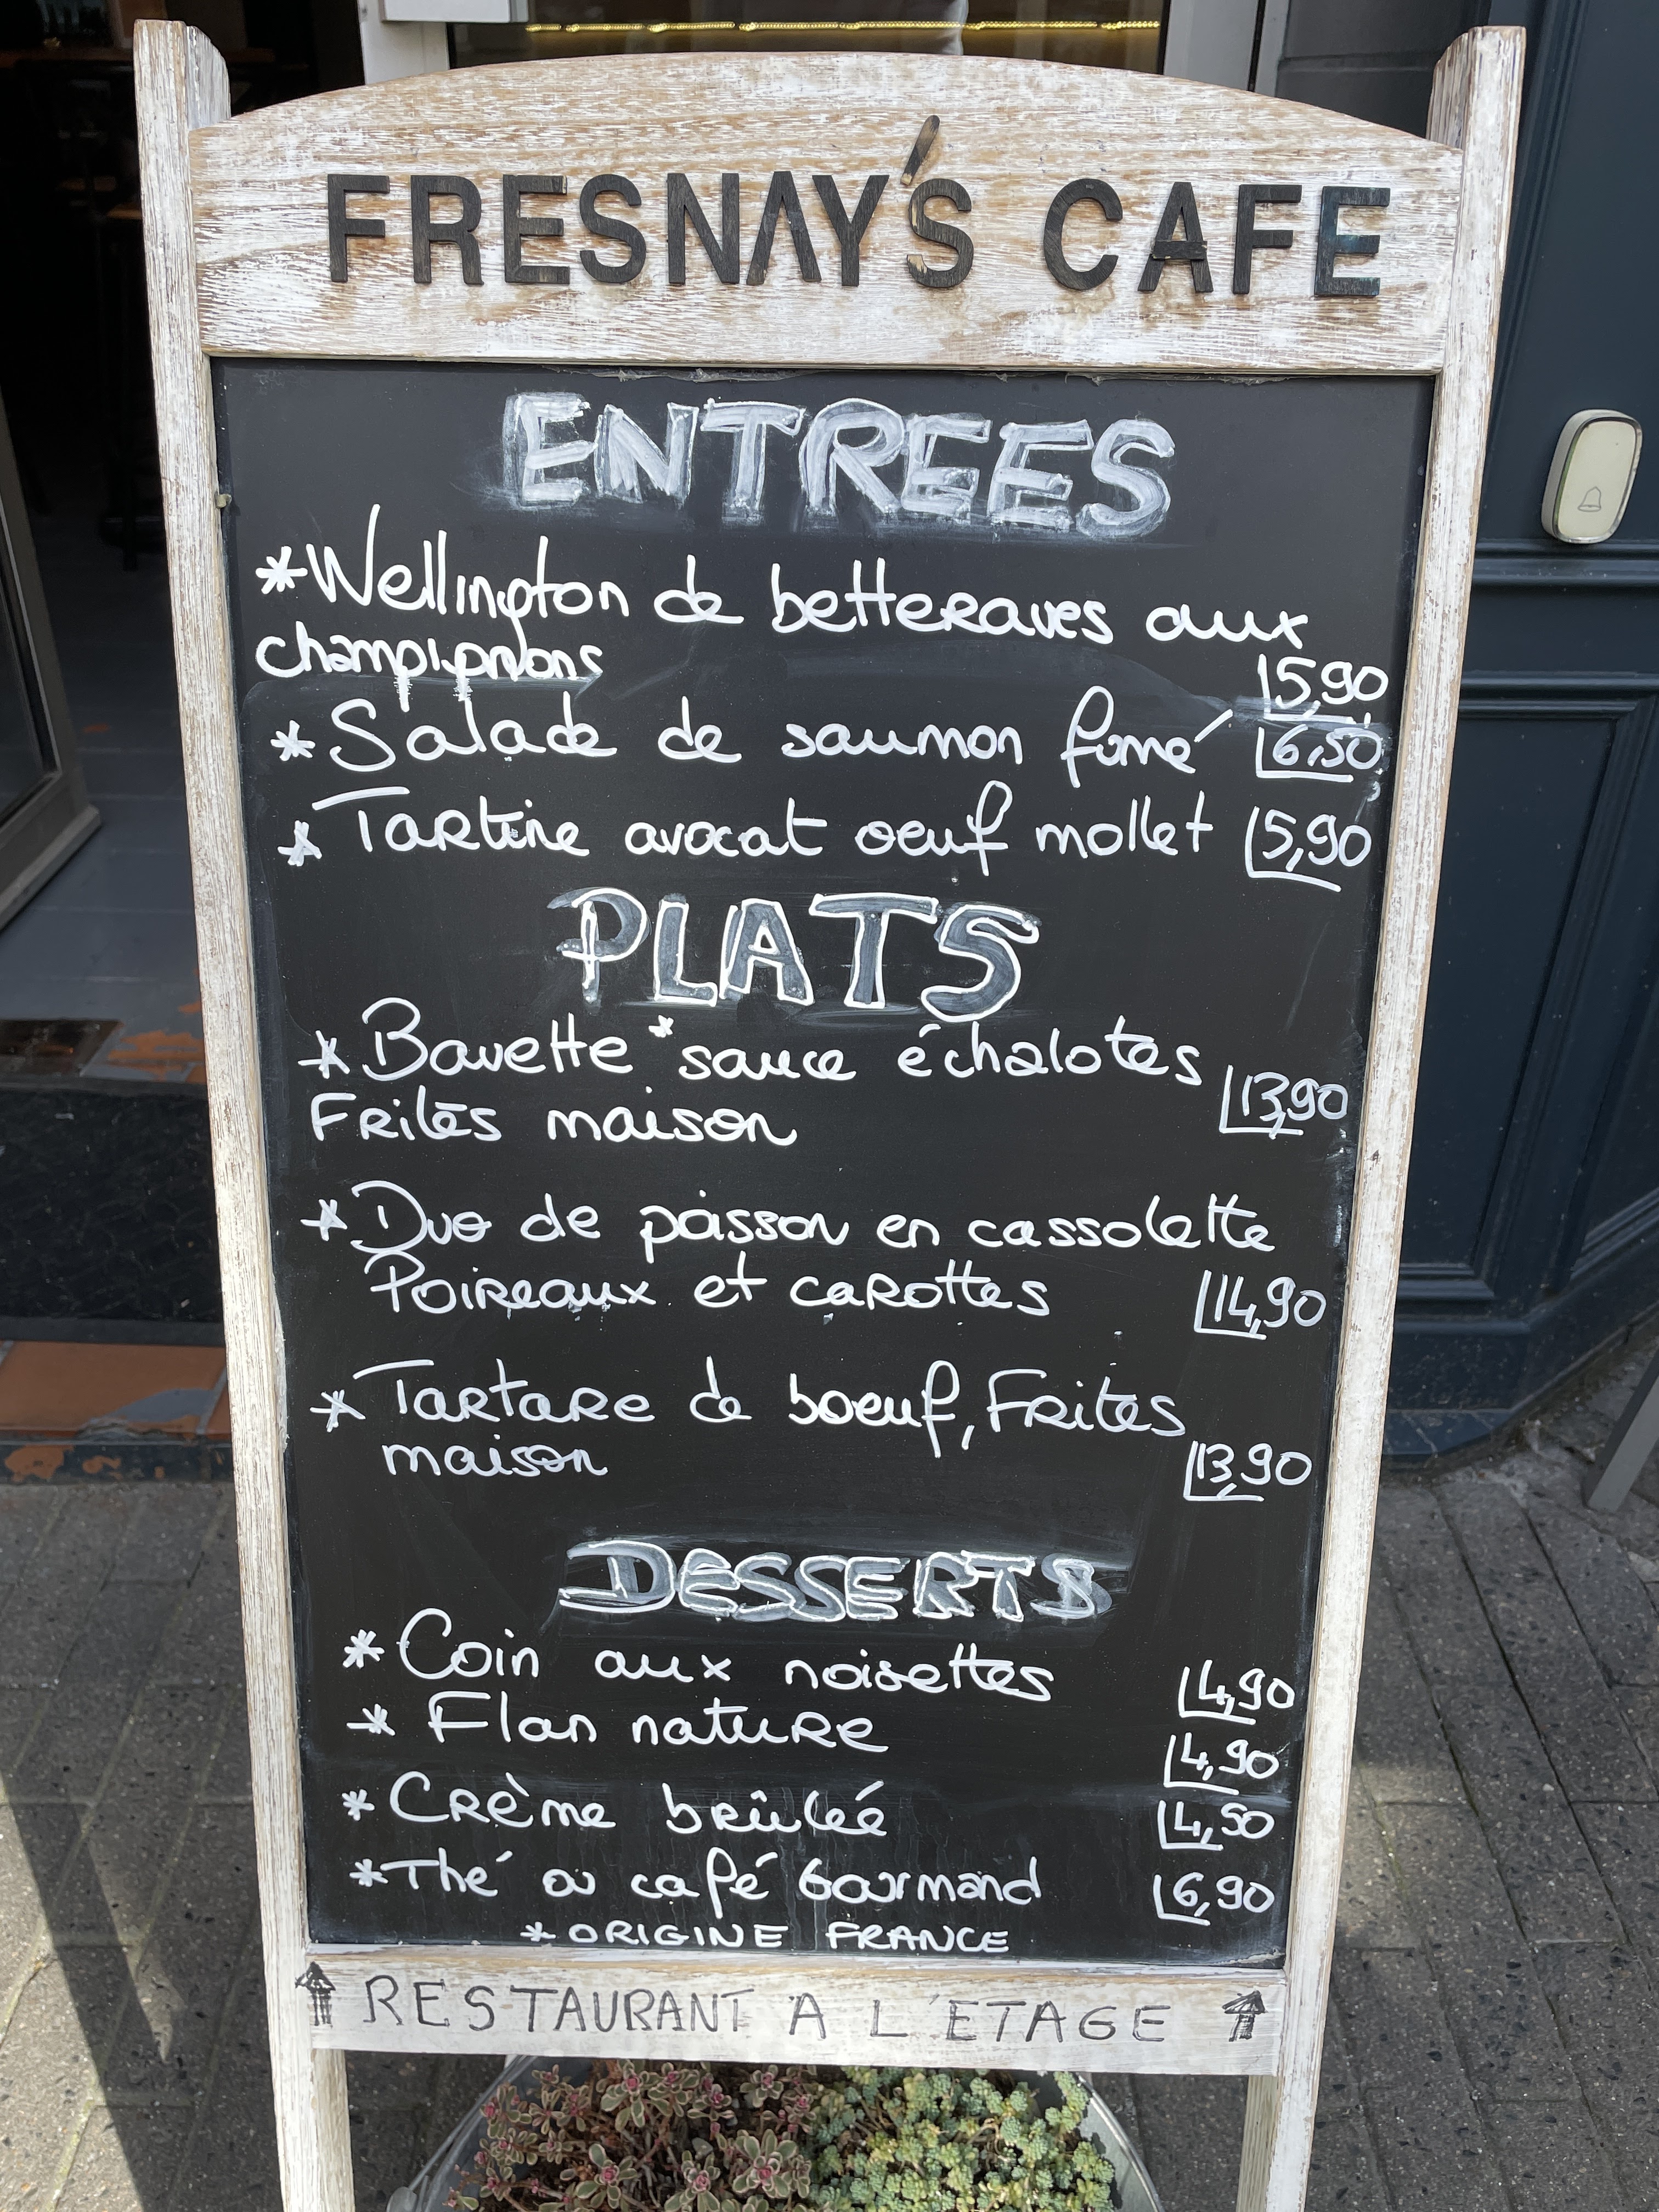 FRESNAY'S CAFE
ENTREES
*Wellington de betteraves aux
champignons 5,90
* Salade de saumon fumé 6,50
* Tartine avocat oeuf mollet 5,90
PLATS
* Bavette * sauce échalotes
Frites maison 13,90
* Duo de poisson en cassolette
Poireaux et carottes 14,90
* Tartare de boeuf, Frites
maison 13,90
DESSERTS
* Coin aux noisettes 4,90
* Flan nature 4,90
* Crème brûlée 4,50
*Thé ou café Gourmand 6,90
* ORIGINE FRANCE
RESTAURANT A L'ETAGE